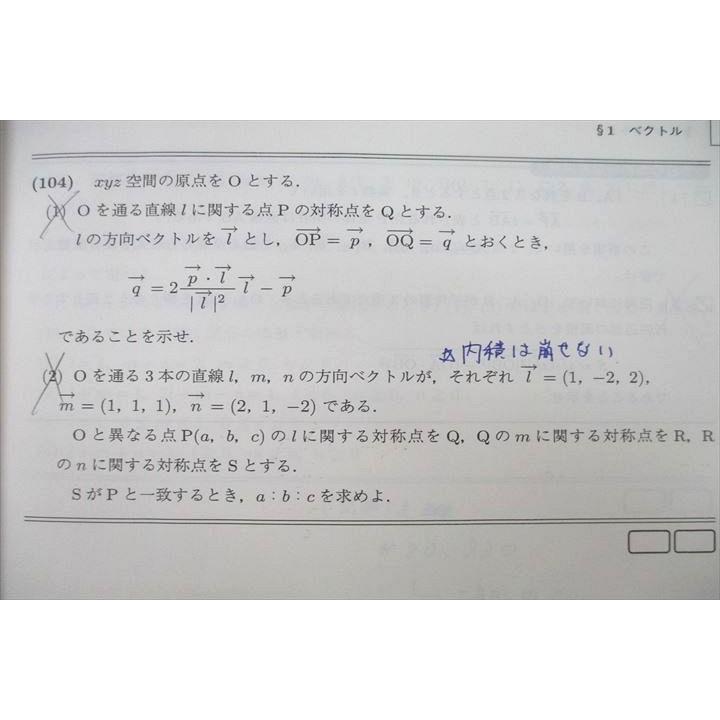 §1 ベクトル
(104) xyz空間の原点をOとする.
(1) Oを通る直線lに関する点Pの対称点をQとする.
lの方向ベクトルを $\vec{l}$ とし, $\overrightarrow{OP} = \vec{p}$, $\overrightarrow{OQ} = \vec{q}$ とおくとき,
$\vec{q} = 2\dfrac{\vec{p} \cdot \vec{l}}{|\vec{l}|^2}\vec{l} - \vec{p}$
であることを示せ.
内積は崩せない
(2) Oを通る3本の直線l, m, nの方向ベクトルが, それぞれ $\vec{l}$ = (1, −2, 2),
$\vec{m}$ = (1, 1, 1), $\vec{n}$ = (2, 1, −2) である.
Oと異なる点P(a, b, c)のlに関する対称点をQ, Qのmに関する対称点をR, R
のnに関する対称点をSとする.
SがPと一致するとき, a : b : cを求めよ.